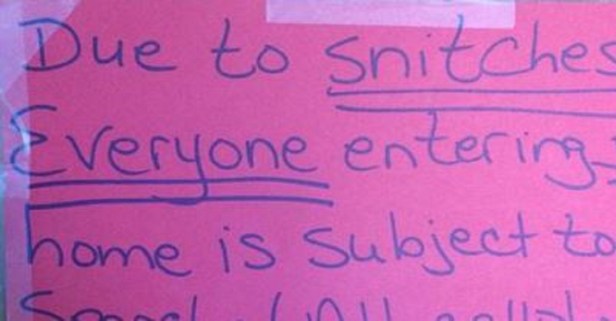 Due to snitches
Everyone entering
home is subject to